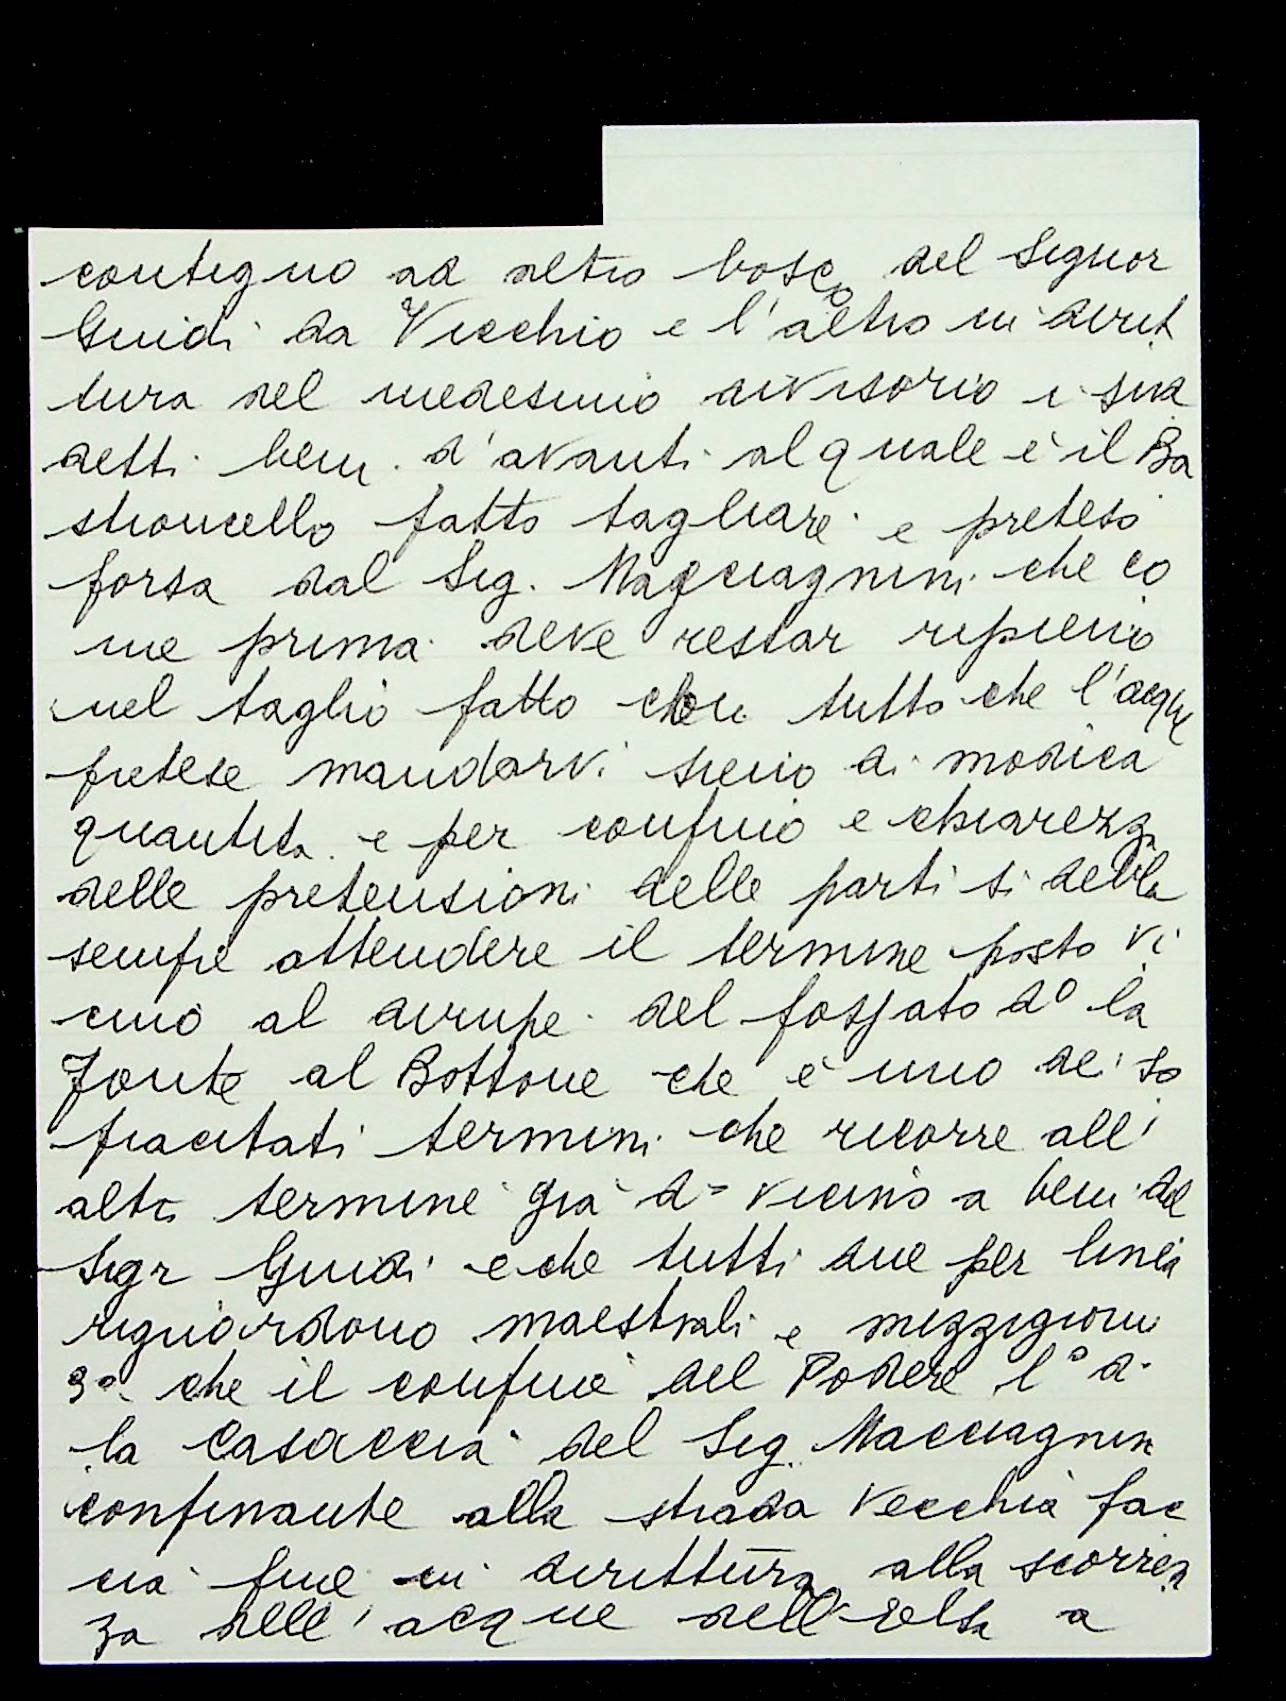 contiguo ad altro bosco del Signor
Guidi da Vicchio e l'altro in dirit
tura del medesimo divisorio i sud
detti beni d'avanti al quale è il Bo
stroncello fatto tagliare e preteso
forsa dal Sig. Macciagnini che co
me prima deve restar ripieno
nel taglio fatto con tutto che l'acque
pretese mandarvi sieno di modica
quantità e per confino e chiarezza
delle pretensioni delle parti si debba
sempre attendere il termine posto vi
cino al dirupe del fossato do la
Fonte al Bottone che è uno dei so
pracitati termini che ricorre all'
altro termine già do vicino a beni del
Sigr Guidi e che tutti due per linea
riguardono maestrali e mezzigiorni
3o che il confine del Podere lo di
la Casaccia del Sig. Macciagnini
confinante alla strada vecchia fac
cia fine in dirittura alla scorren
za dell'acque dell'Elsa a